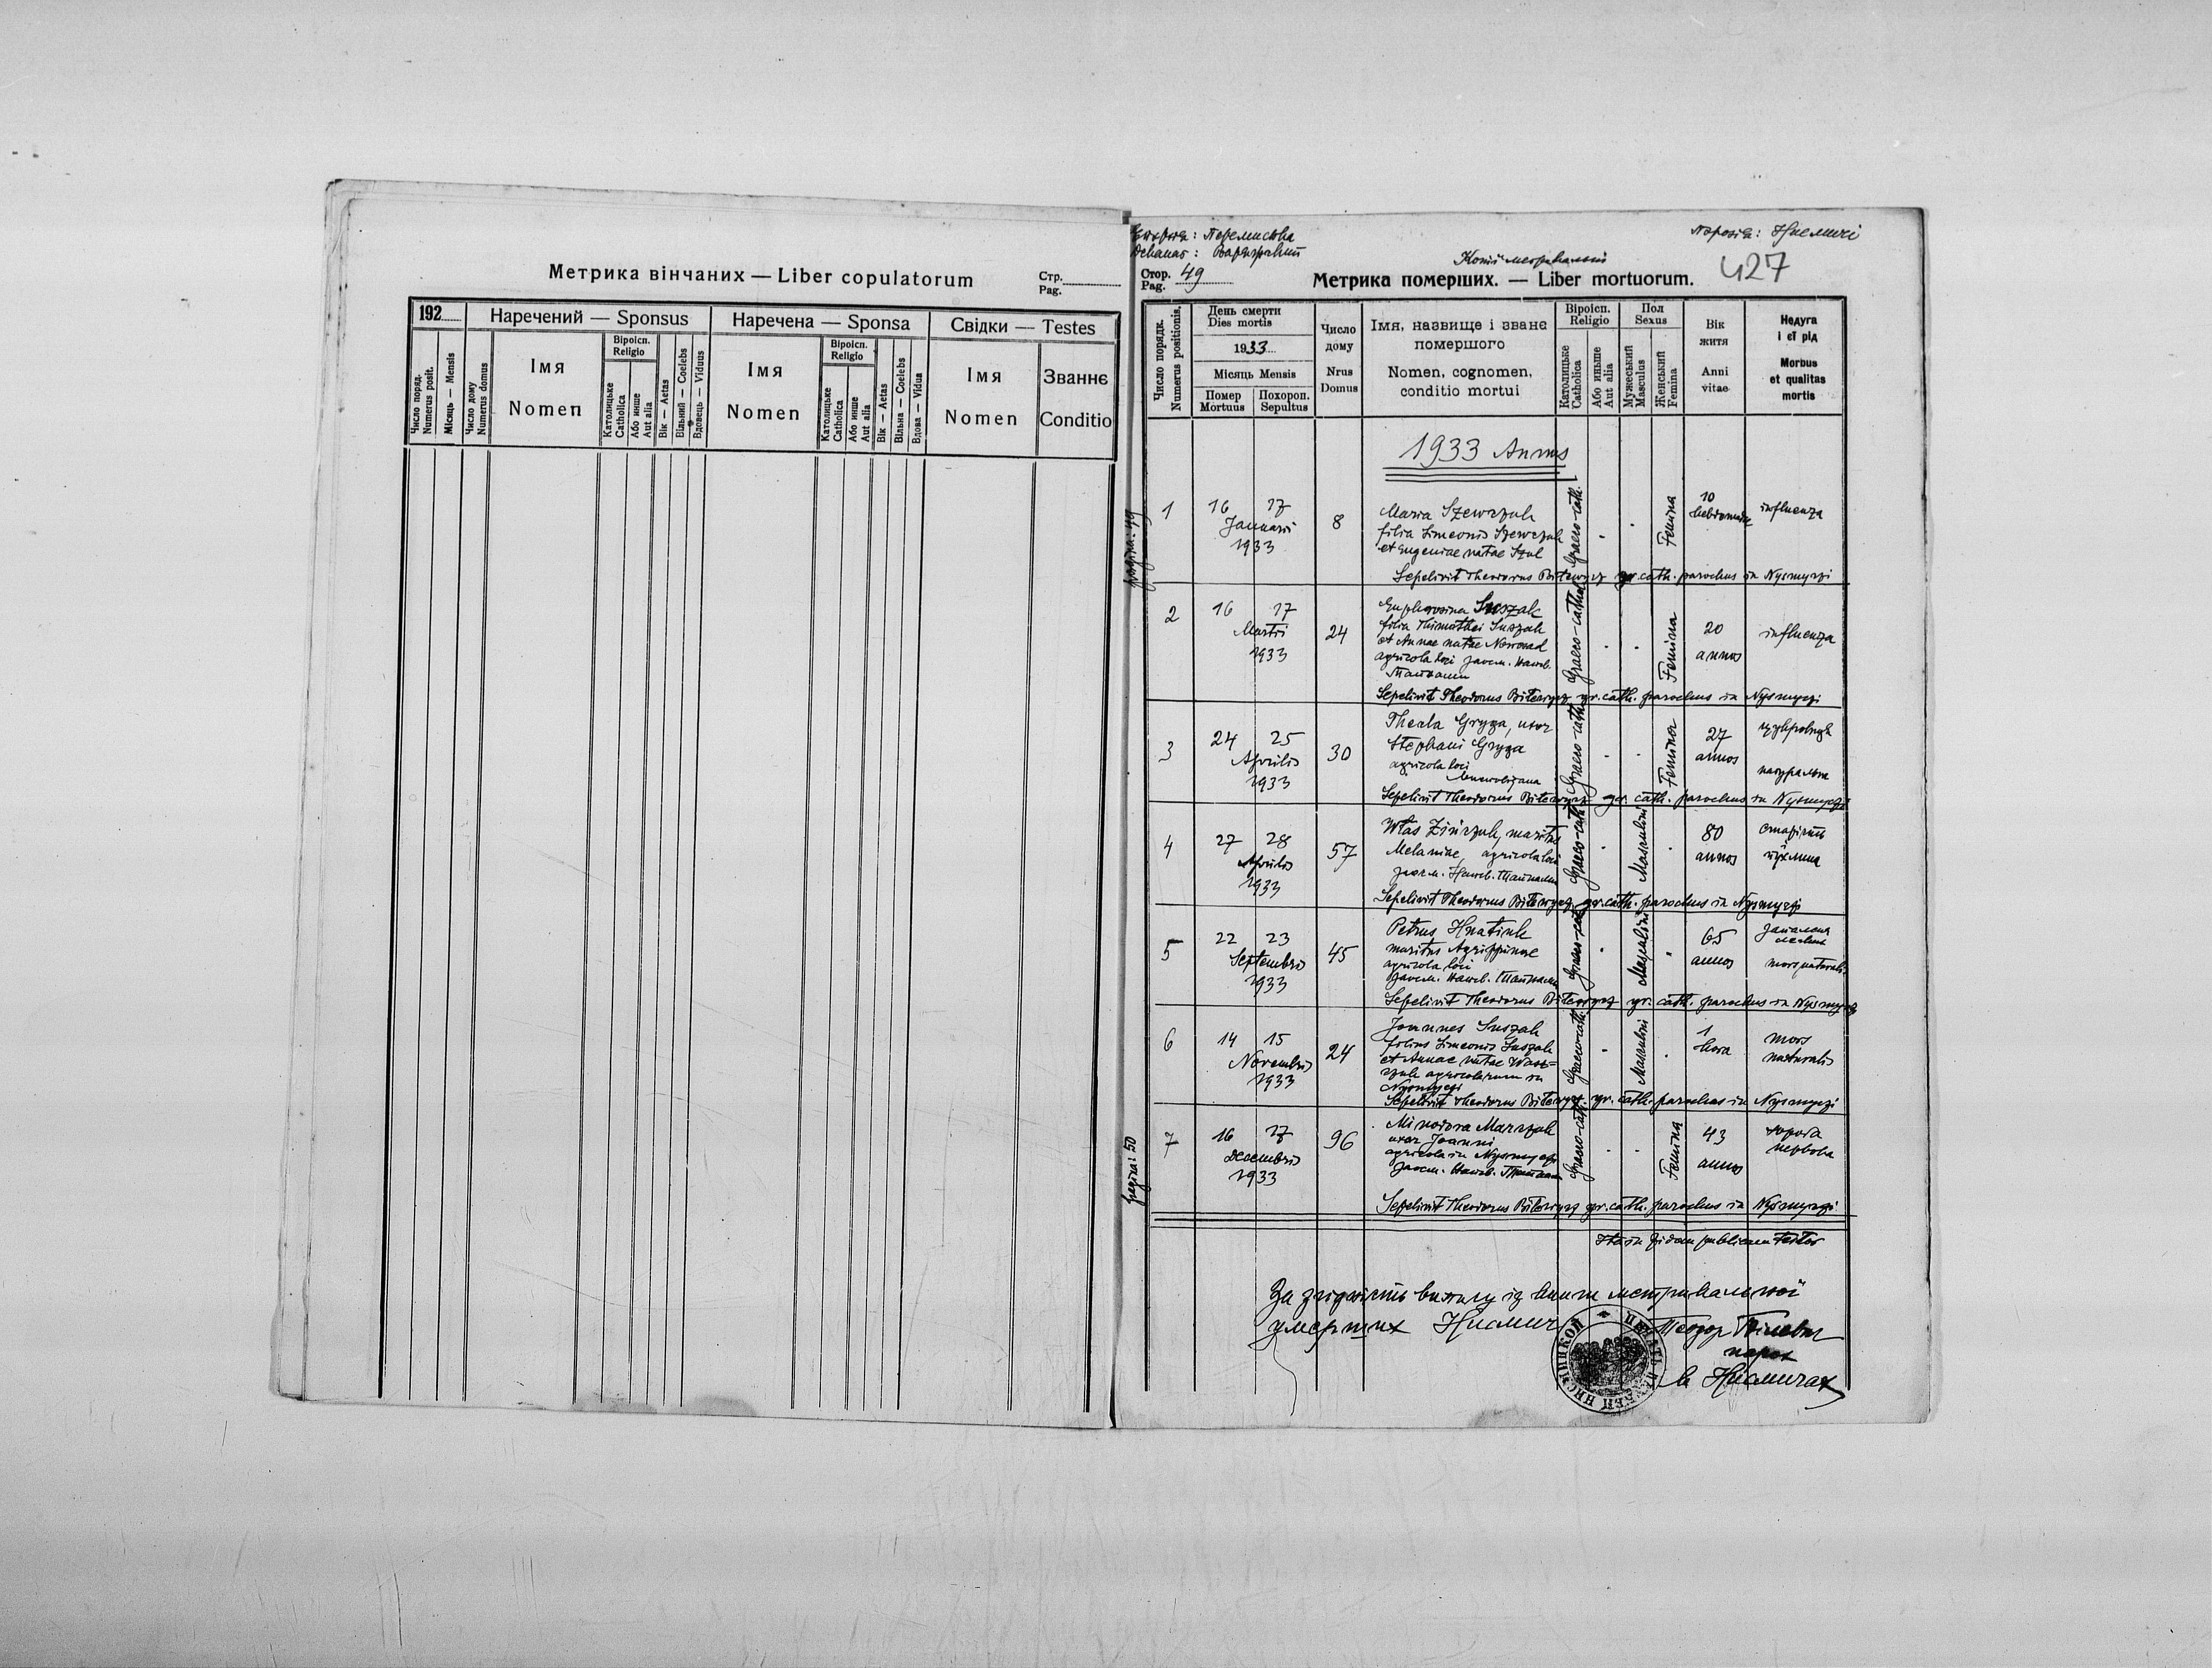 Метрика вінчаних — Liber copulatorum
Стр.
Pag.
192
Наречений — Sponsus
Наречена — Sponsa
Свідки — Testes
Число поряд.
Numerus posit.
Місяць — Mensis
Число дому
Numerus domus
Імя
Nomen
Віроісп.
Religio
Католицьке
Catholica
Або инше
Aut alia
Вік — Aetas
Вільний — Coelebs
Вдовець — Viduus
Імя
Nomen
Віроісп.
Religio
Католицьке
Catholica
Або инше
Aut alia
Вік — Aetas
Вільна — Coelebs
Вдова — Vidua
Імя
Nomen
Званнє
Conditio
Парохія: Нисмичі
Деканат:
427
Стор.
Pag. 49
Метрика померших. — Liber mortuorum.
Число порядк.
Numerus positionis.
День смерти
Dies mortis
1933
Місяць Mensis
Помер
Mortuus
Похорон.
Sepultus
Число
дому
Nrus
Domus
Імя, назвище і званє
помершого
Nomen, cognomen,
conditio mortui
Віроісп.
Religio
Католицьке
Catholica
Або иньше
Aut alia
Пол
Sexus
Мужеський
Masculus
Женський
Femina
Вік
житя
Anni
vitae
Недуга
і єї рід
Morbus
et qualitas
mortis
1933 Annus
pagina: 49
1
16 17
Januarii
1933
8
Maria Szewczuk
filia Simeonis Szewczuk
et Eugeniae natae Szul
Graeco-cath.
Femina
10
influenza
Sepelivit Theodorus Bilewycz gr. cath. parochus in Nysmyczi
2
16 17
Martii
1933
24
Euphrosina Suszak
filia Thimothei Suszak
et Annae natae Nowosad
agricola loci
Graeco-cathol.
Femina
20
annos
influenza
Sepelivit Theodorus Bilewycz gr. cath. parochus in Nysmyczi
3
24 25
Aprilis
1933
30
Thecla Gryza, uxor
Stephani Gryza
agricola loci
Graeco-cath.
Femina
27
annos
натуральна
Sepelivit Theodorus Bilewycz gr. cath. parochus in Nysmyczi
4
27 28
Aprilis
1933
57
Włas Zińczuk, maritus
Melaniae, agricola loci
Graeco-cath.
Masculini
80
annos
Sepelivit Theodorus Bilewycz gr. cath. parochus in Nysmyczi
5
22 23
Septembris
1933
45
Petrus Hnatiuk
maritus Agrippinae
agricola loci
Graeco-cath.
Masculini
65
annos
mors naturalis
Sepelivit Theodorus Bilewycz gr. cath. parochus in Nysmyczi
6
14 15
Novembris
1933
24
Joannes Suszak
filius Simeonis Suszak
et Annae natae
agricolarum in
Nysmyczi
Graeco-cath.
Masculini
1
hora
mors
naturalis
Sepelivit Theodorus Bilewycz gr. cath. parochus in Nysmyczi
pagina: 50
7
16 17
Decembris
1933
96
Minodora Marczuk
uxor Joanni
agricola in Nysmyczi
Graeco-cath.
Femina
43
annos
нервова
Sepelivit Theodorus Bilewycz gr. cath. parochus in Nysmyczi
Ita in fidem publicam testor
За згідність випису із книги метрикальної
умерших Нисмичі
Теодор Білевич
парох
в Нисмичах